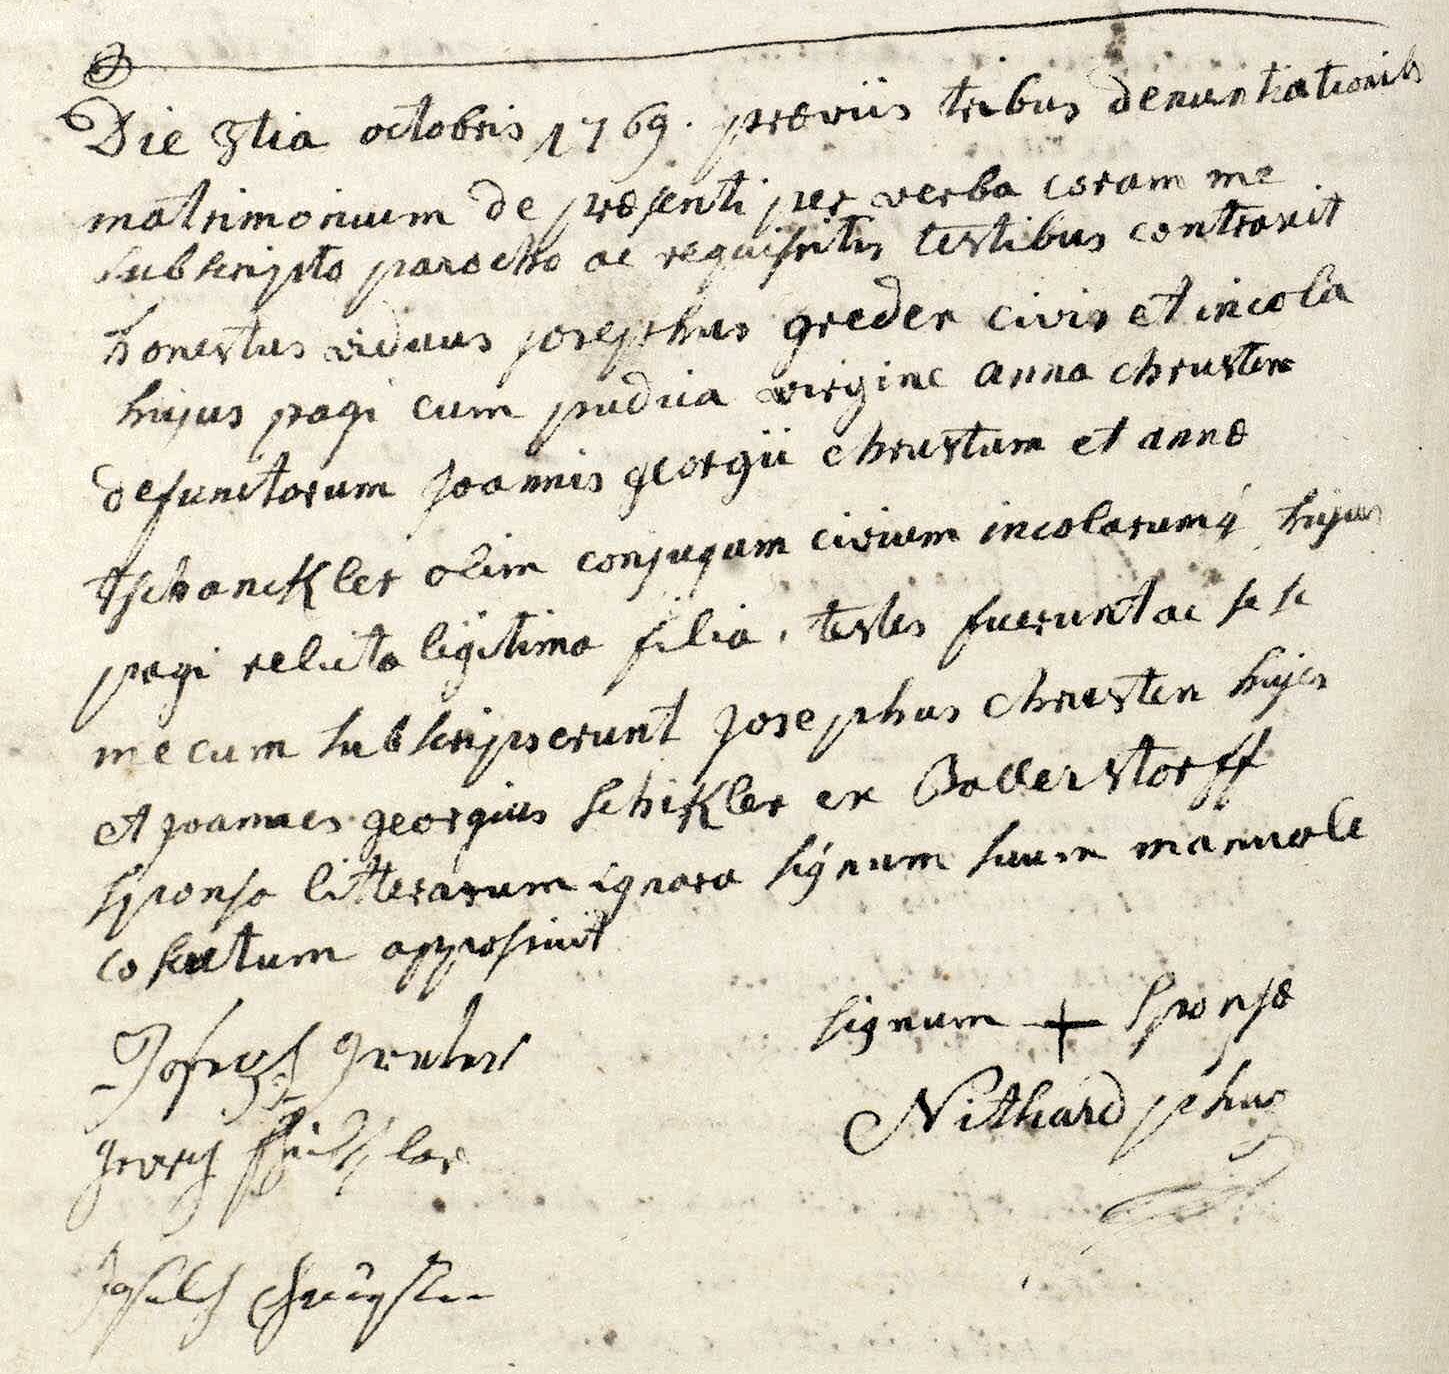 Die 3tia octobris 1769. præviis tribus denuntiationib
matrimonium de præsenti per verba coram me
subscripto parocho ac requisitis testibus contraxit
honestus viduus josephus greder civis et incola
hujus pagi cum pudica virgine anna chrusten
defunctorum joannis georgii chrusten et annæ
tschanckler olim conjugum civium incolarumq hujus
pagi relicta legitima filia. testes fuerunt ac sese
mecum subscripserunt josephus chrusten hujas
et joannes georgius schikler ex Ballerstorff
sponsa litterarum ignara signum suum manuale
coactum apposuit
signum + sponsæ
Joseph greder
Nithard
georg schickler
Joseph chrüsten